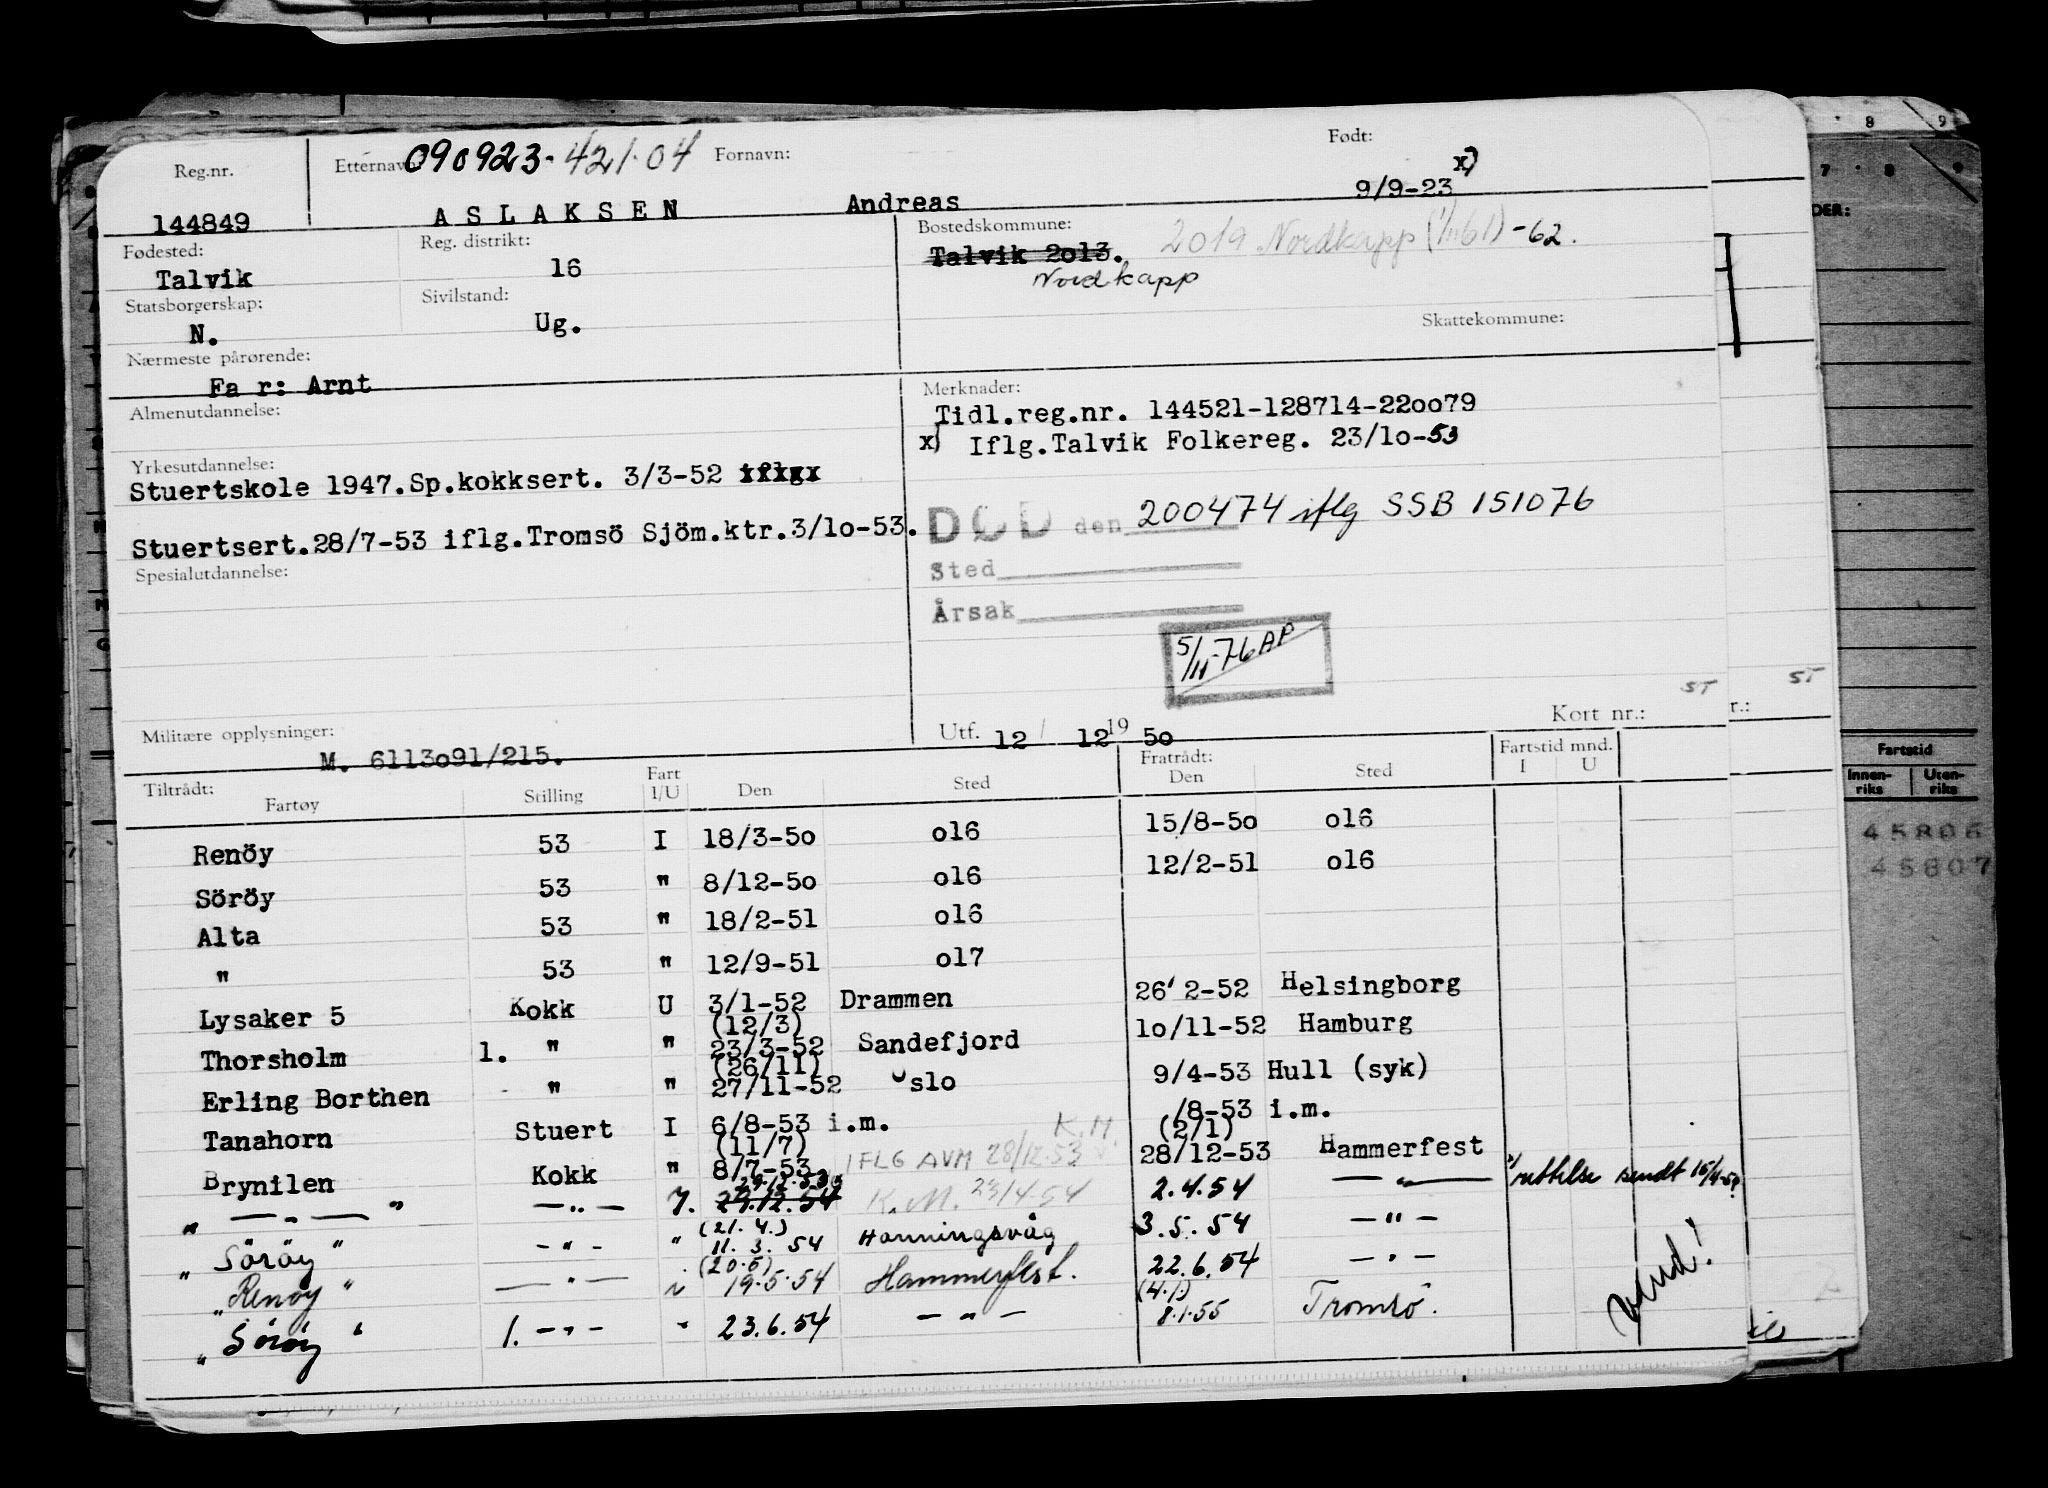 Reg.nr. Etternavn: 090923-421.04 Fornavn: Født:
144849 ASLAKSEN Andreas 9/9-23 x)
Fødested: Reg. distrikt: Bostedskommune:
Talvik 16 Talvik 2o13. 2019 Nordkapp (1/1161)-62.
Nordkapp
Statsborgerskap: Sivilstand: Skattekommune:
N. Ug.
Nærmeste pårørende:
Fa r: Arnt
Almenutdannelse:
Merknader:
Tidl.reg.nr. 144521-128714-22oo79
x) Iflg.Talvik Folkereg. 23/1o-53
Yrkesutdannelse:
Stuertskole 1947.Sp.kokksert. 3/3-52 iflg
Stuertsert.28/7-53 iflg.Tromsö Sjöm.ktr.3/1o-53.
DØD den 200474 iflg SSB 151076
Sted
Årsak
Spesialutdannelse:
5/11-76 AP
ST
ST
Militære opplysninger: Utf. 12/ 12 19 5o Kort nr.: r.:
M. 6113o91/215.
Tiltrådt: Fratrådt: Fartstid mnd.
Fartøy Stilling Fart I/U Den Sted Den Sted I U
Renöy 53 I 18/3-5o o16 15/8-5o o16
Söröy 53 " 8/12-5o o16 12/2-51 o16
Alta 53 " 18/2-51 o16
" 53 " 12/9-51 o17
Lysaker 5 Kokk U 3/1-52 Drammen 26' 2-52 Helsingborg
(12/3)
Thorsholm 1. " " 23/3-52 Sandefjord 1o/11-52 Hamburg
(26/11)
Erling Borthen " " 27/11-52 Oslo 9/4-53 Hull (syk)
Tanahorn Stuert I 6/8-53 i.m. /8-53 i.m.
(11/7) K.M. (2/1)
Brynilen Kokk " 8/7-53 IFLG AVM 28/12-53 28/12-53 Hammerfest
29.12.53
" — " — " — " — I. 29.12.54 K.M. 23/4-54 2.4.54 — " — rettelse sendt 15/4-59
(21.4.)
" Söröy " — " — " 11.3.54 Honningsvåg 3.5.54 — " —
(20.5)
" Renöy " — " — " 19.5.54 Hammerfest. 22.6.54 — " —
(4.1.)
" Söröy " 1. — " — " 23.6.54 — " — 8.1.55 Tromsö.
Vend!
8 9
7 8 9
DER:
Fartstid
Innenriks Utenriks
45806
45807